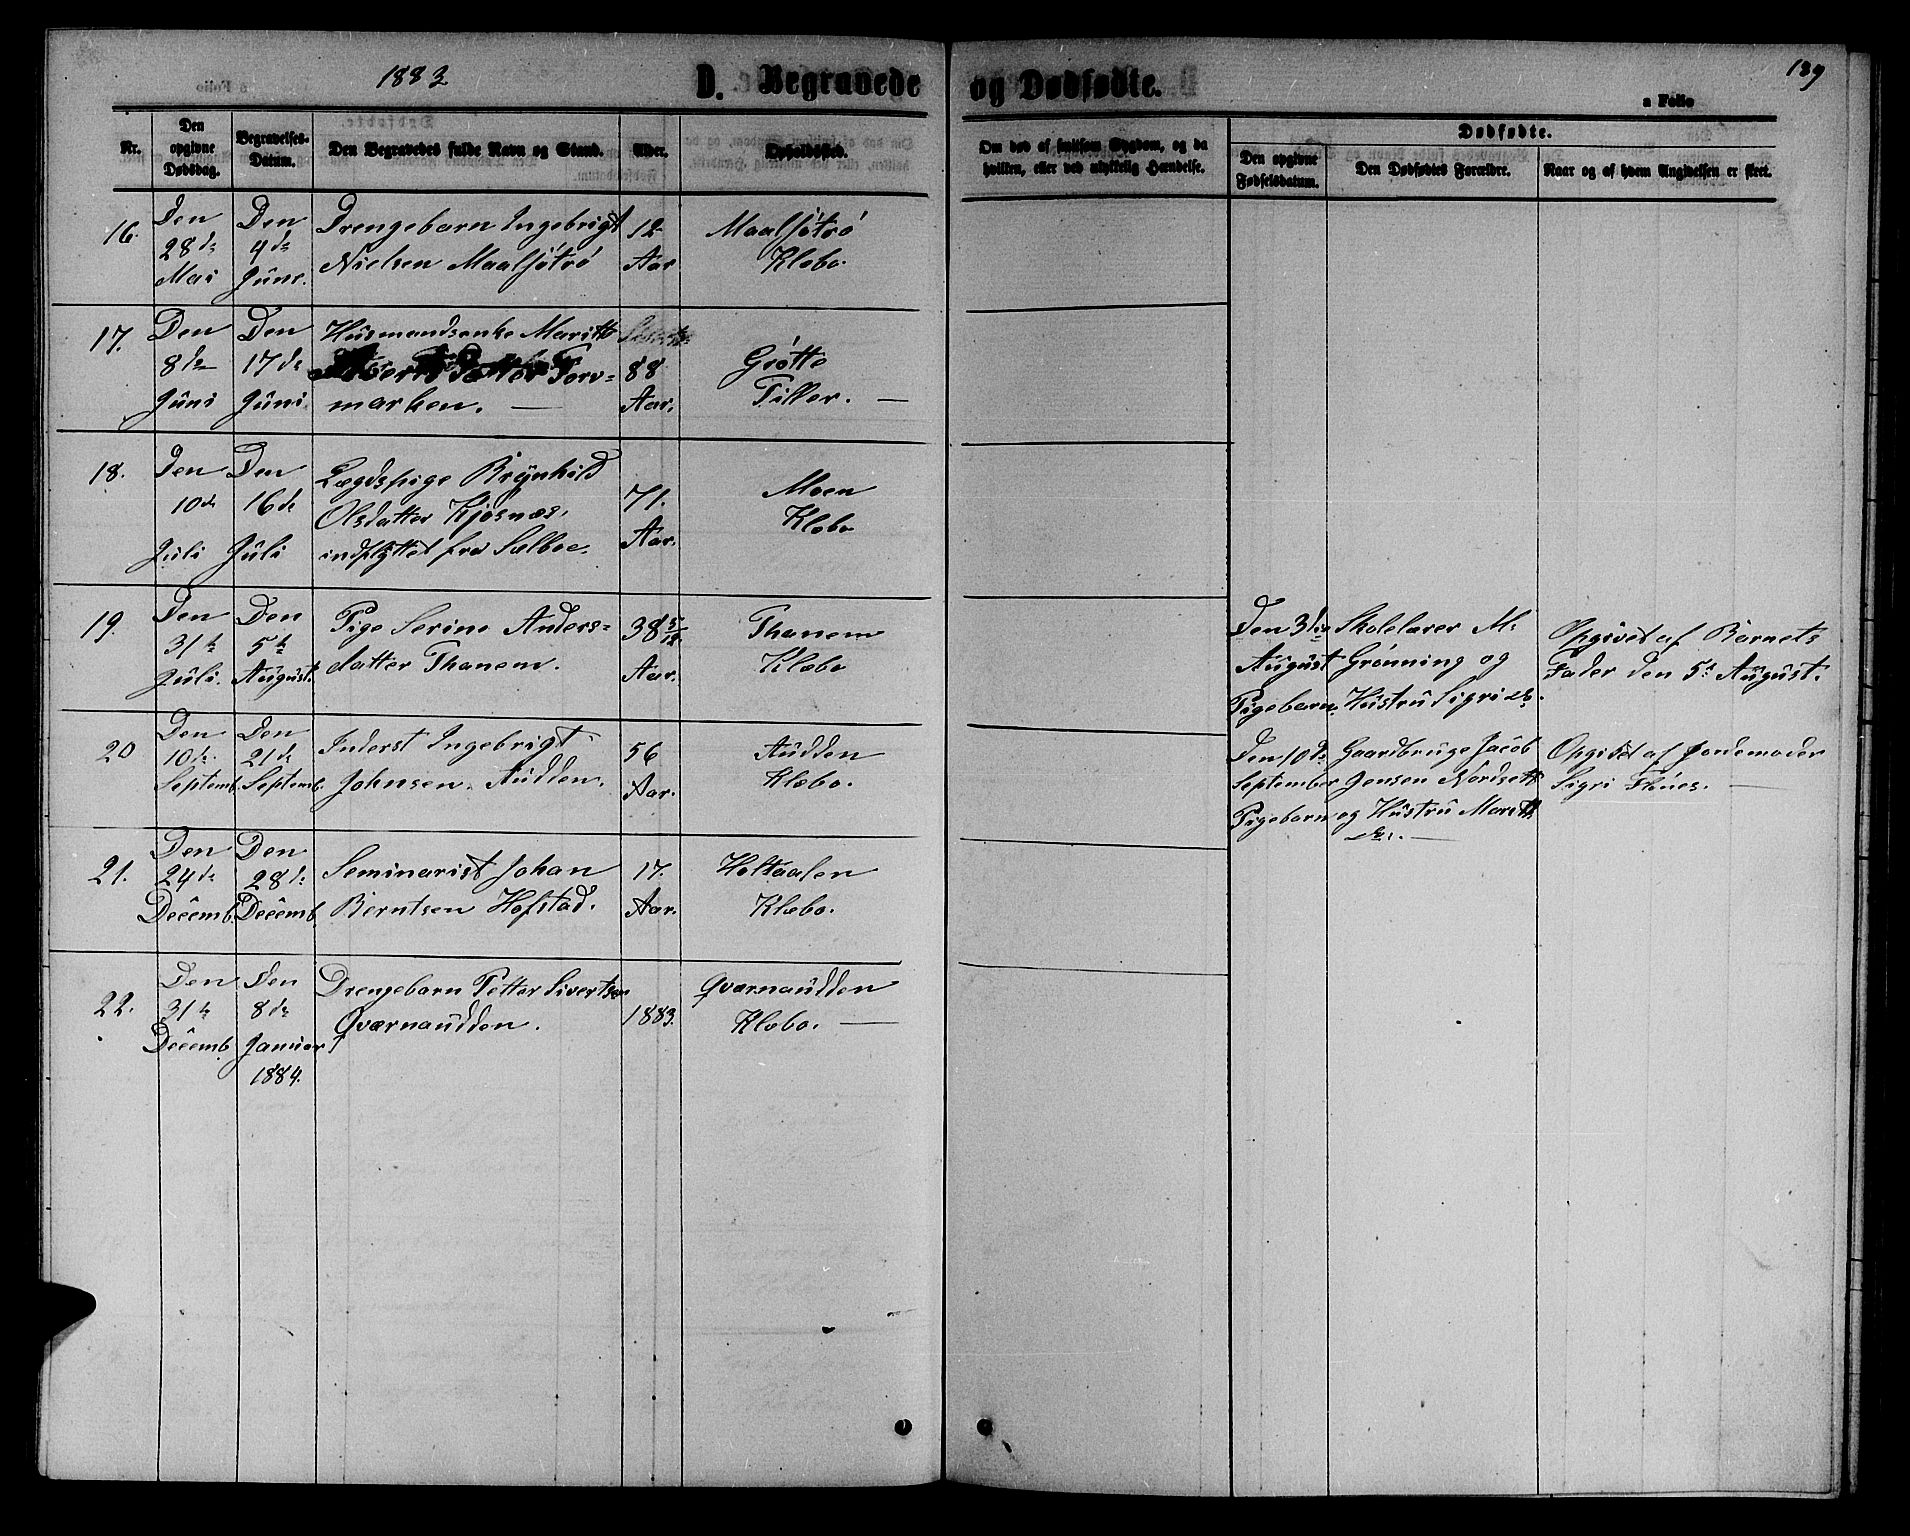 1883
D. Begravede og Dødfødte.
189
a Folio
Nr.
Den opgivne Dødsdag.
Begravelses-Datum.
Den Begravedes fulde Navn og Stand.
Alder.
Opholdssted.
Om død af smitsom Sygdom, og da
hvilken, eller ved ulykkelig Hændelse.
Dødfødte.
Den opgivne
Fødselsdatum.
Den Dødfødtes Forældre.
Naar og af hvem Angivelsen er skeet.
16.
Den
28de
Mai
Den
4de
Juni.
Drengebarn Ingebrigt
Nielsen Maalsjötrö
12
Aar
Maalsjötrö
Klæbo.
17.
Den
8de
Juni
Den
17de
Juni
Husmandsenke Marith
Torv=
marken. —
88
Aar.
Grötte
Tiller. —
18.
Den
10de
Juli
Den
16de
Juli
Lægdspige Brynhild
Olsdatter Kjøsnæs,
indflyttet fra Sælboe.
71.
Aar.
Moen
Klæbo
19.
Den
31te
Juli.
Den
5te
August.
Pige Serine Anders=
datter Thanem.
38 5/12
Aar.
Thanem
Klæbo
Den 3die
August
Pigebarn.
Skolelærer M.
Grønning og
Hustru Sigri
Opgivet af Barnets
Fader den 5te August.
20
Den
10de
Septemb.
Den
21de
Septemb.
Inderst Ingebrigt
Johnsen Audden.
56
Aar.
Audden
Klæbo.
Den 10de
September
Pigebarn
Gaardbruge Jacob
Jensen Nordseth
og Hustru Marith
Opgivet af Jordemoder
Sigri Flûes. —
21.
Den
24de
Decemb.
Den
28de
Decemb.
Seminarist Johan
Berntsen Hofstad.
17.
Aar.
Holtaalen
Klæbo.
22.
Den
31te
Decemb.
Den
8de
Januar
1884.
Drengebarn Petter Sivertsen
Qværnaudden.
1883.
Qværnaudden
Klæbo. —